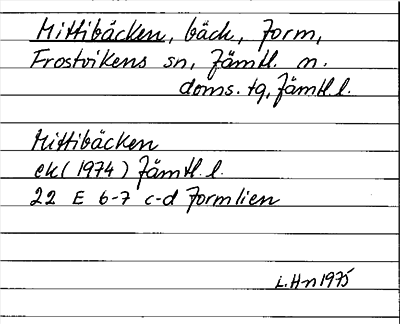 Mittibäcken, bäck, Jorm,
Frostvikens sn, Jämtl. n.
doms. tg, Jämtl. l.
Mittibäcken
ek (1974) Jämtl. l.
22 E 6-7 c-d Jormlien
L.Hn 1975